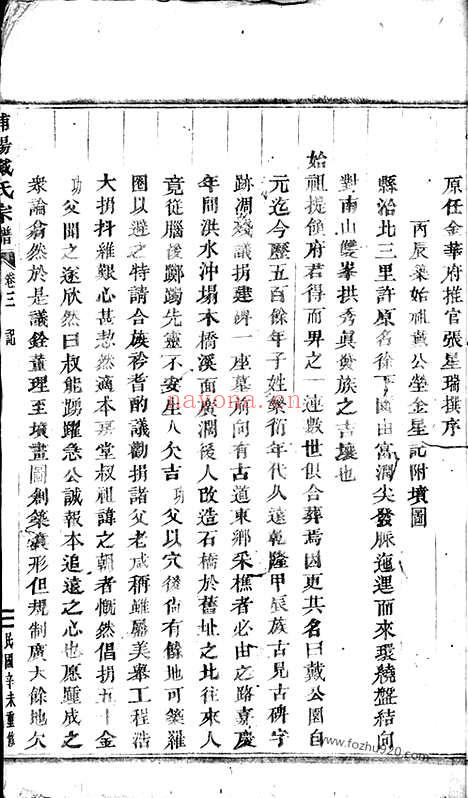 原任金華府推官張星瑞撰序
丙辰築始祖戴公塋金星記附墳圖
縣治北三里許原名徐下園由富潤尖發脈迤邐而來環繞盤結向
對南山雙峯拱秀眞發族之吉壤也
始祖提領府君得而畀之一連數世俱合葬焉因更其名曰戴公園自
元迄今歷五百餘年子姓繁衍年代久遠乾隆甲辰族古見古碑字
跡凋殘議捐建碑一座墓前向有古道東鄉采樵者必由之路嘉慶
年間洪水沖塌木橋溪面廣濶後人改造石橋於舊址之北往來人
竟從腦後躑躅先靈不安生人欠吉功父以穴後尙有餘地可築羅
圍以遮之特請合族衿耆酌議勸捐諸父老咸稱雖屬美舉工程浩
大捐抖維艱心甚愁然適本房堂叔祖諱之朝者慨然倡捐五十金
功父聞之遂欣然曰叔能踴躍急公誠報本追遠之心也愿踵成之
衆論翕然於是議銓董理至墳畫圖創築囊形但規制廣大餘地欠
浦陽戴氏宗譜
卷三 記
民國辛未重修
nayona.cn
www.fozhu920.com